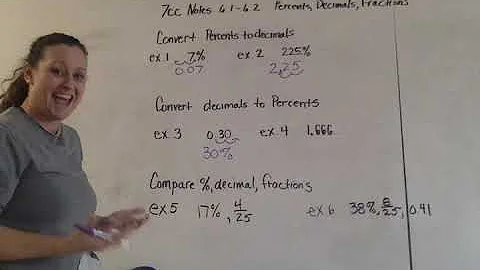 7cc Notes 6.1-6.2 Percents, Decimals, Fractions
Convert Percents to decimals
ex. 1 7% ex. 2 225%
0.07 2.25
Convert decimals to Percents
ex 3 0.30 ex. 4 1.666...
30%
Compare %, decimal, fractions
ex 5 17%, 4/25 ex 6 38%, 8/25, 0.41